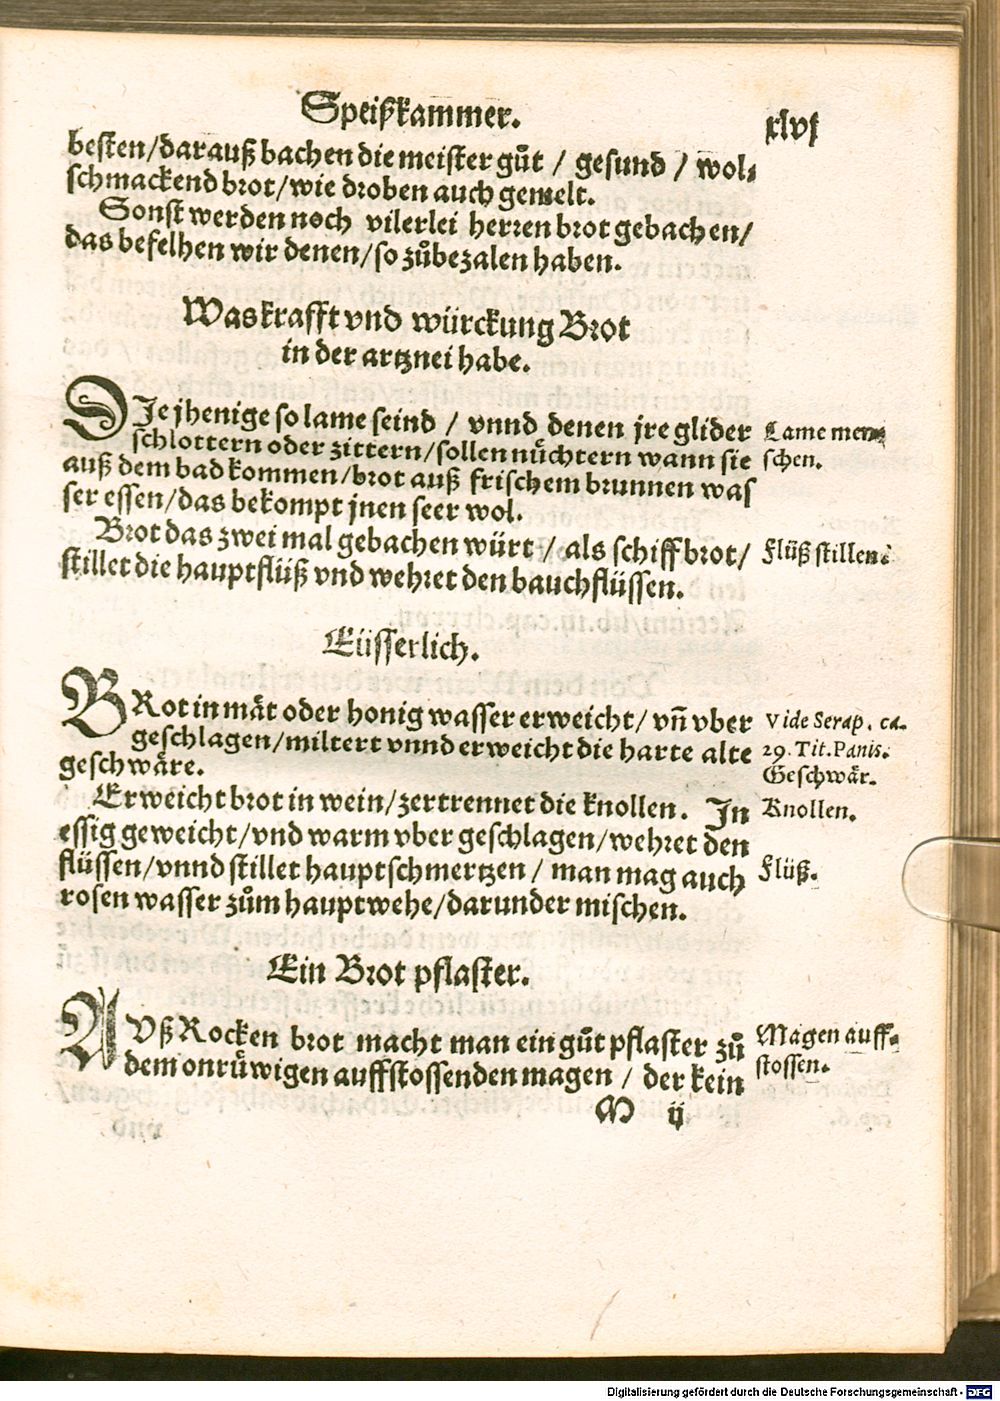 Speißkammer.
xlvj
besten/darauß bachen die meister gůt / gesund / wol⸗
schmackend brot/wie droben auch gemelt.
Sonst werden noch vilerlei herren brot gebachen/
das befelhen wir denen/so zůbezalen haben.
Was krafft vnd würckung Brot
in der artznei habe.
DIe jhenige so lame seind / vnnd denen jre glider
schlottern oder zittern/sollen nůchtern wann sie
auß dem bad kommen/brot auß frischem brunnen was
ser essen/das bekompt jnen seer wol.
Lame men⸗
schen.
Brot das zwei mal gebachen würt / als schiffbrot/
stillet die hauptflüß vnd wehret den bauchflüssen.
Flüß stillen.
Eüsserlich.
BRot in mät oder honig wasser erweicht/ vñ vber
geschlagen/miltert vnnd erweicht die harte alte
geschwäre.
Vide Serap. ca.
29. Tit. Panis.
Geschwär.
Erweicht brot in wein/zertrennet die knollen. In
essig geweicht/vnd warm vber geschlagen/wehret den
flüssen/vnnd stillet hauptschmertzen / man mag auch
rosen wasser zům hauptwehe/darunder mischen.
Knollen.
Flüß.
Ein Brot pflaster.
AVß Rocken brot macht man ein gůt pflaster zů
dem onrüwigen auffstossenden magen / der kein
Magen auff⸗
stossen.
M ij
Digitalisierung gefördert durch die Deutsche Forschungsgemeinschaft - DFG